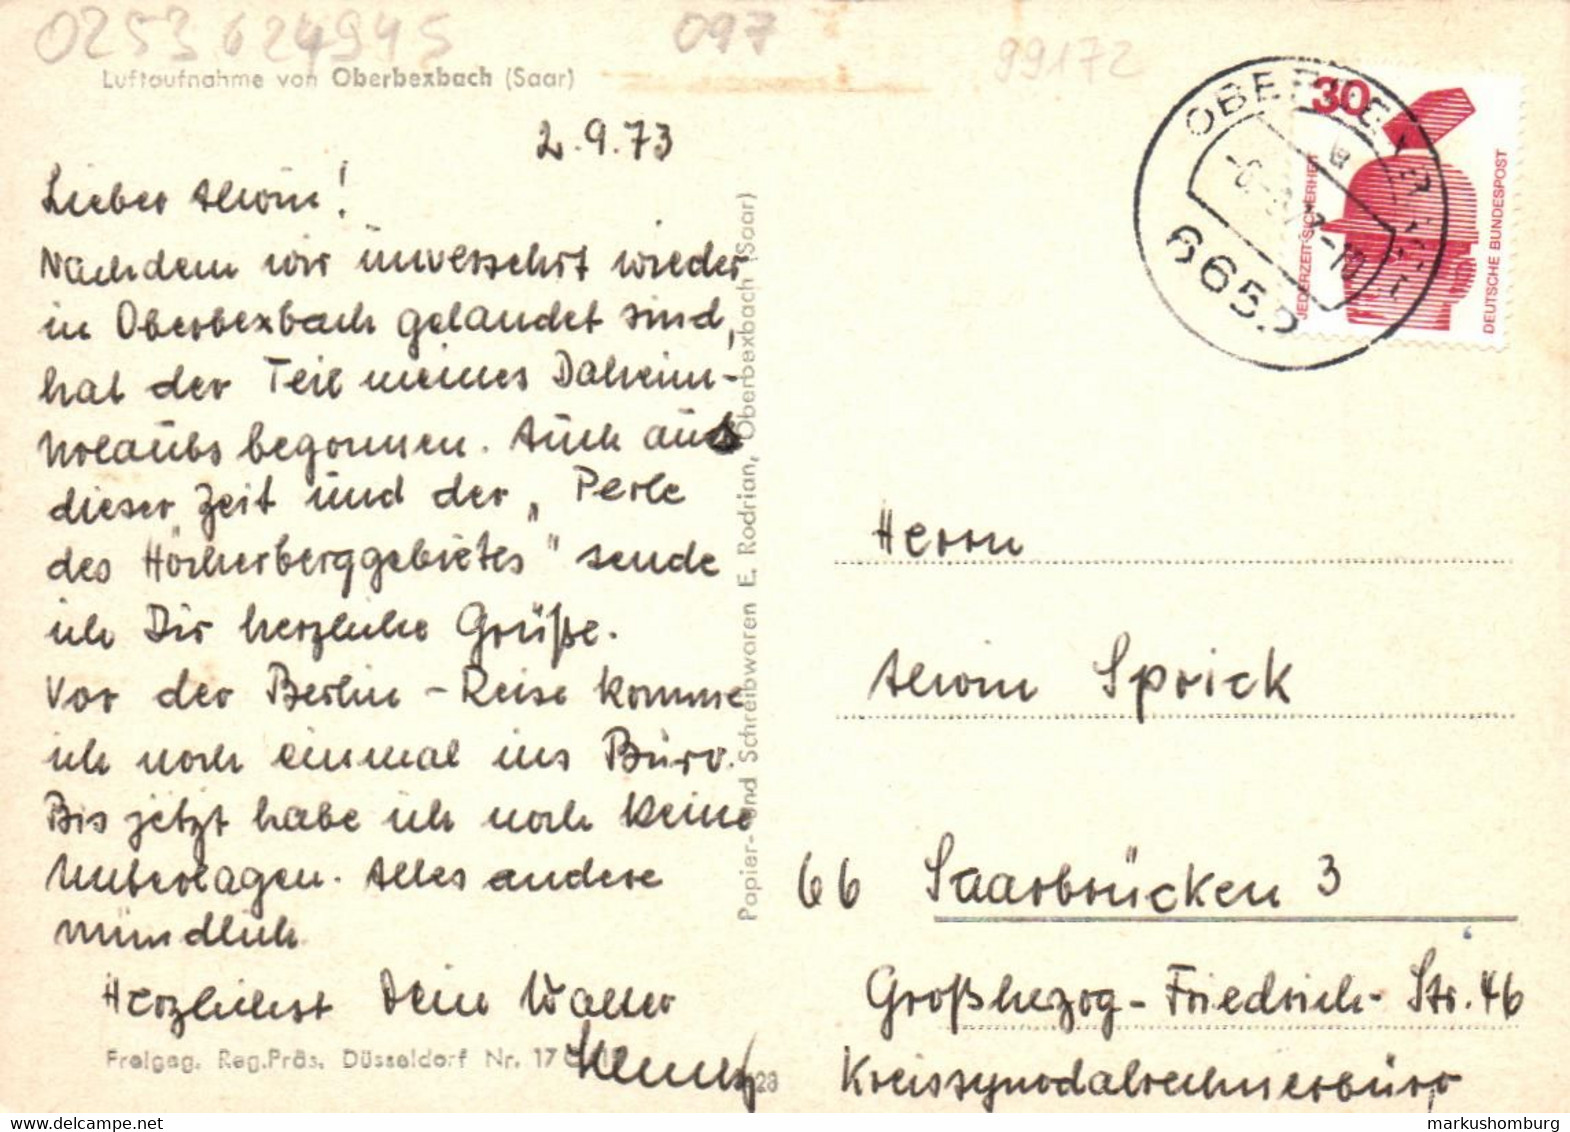 0253624945
097
99172
Luftaufnahme von Oberbexbach (Saar)
2.9.73
Lieber Alwin!
Nachdem wir unversehrt wieder
in Oberbexbach gelandet sind,
hat der Teil meines Daheim-
urlaubs begonnen. Auch aus
dieser Zeit und der „Perle
des Höcherberggebietes" sende
ich Dir herzliche Grüße.
Vor der Berlin-Reise komme
ich noch einmal ins Büro.
Bis jetzt habe ich noch keine
Unterlagen. Alles andere
mündlich.
Herzlichst Dein Walter
Freigeg. Reg.Präs. Düsseldorf Nr. 17
Papier- und Schreibwaren E. Rodrian, Oberbexbach (Saar)
30
JEDERZEIT SICHERHEIT
DEUTSCHE BUNDESPOST
Herrn
Alwin Sprick
66 Saarbrücken 3
Großherzog-Friedrich-Str. 46
Kreissynodalrechnerbüro
markushomburg